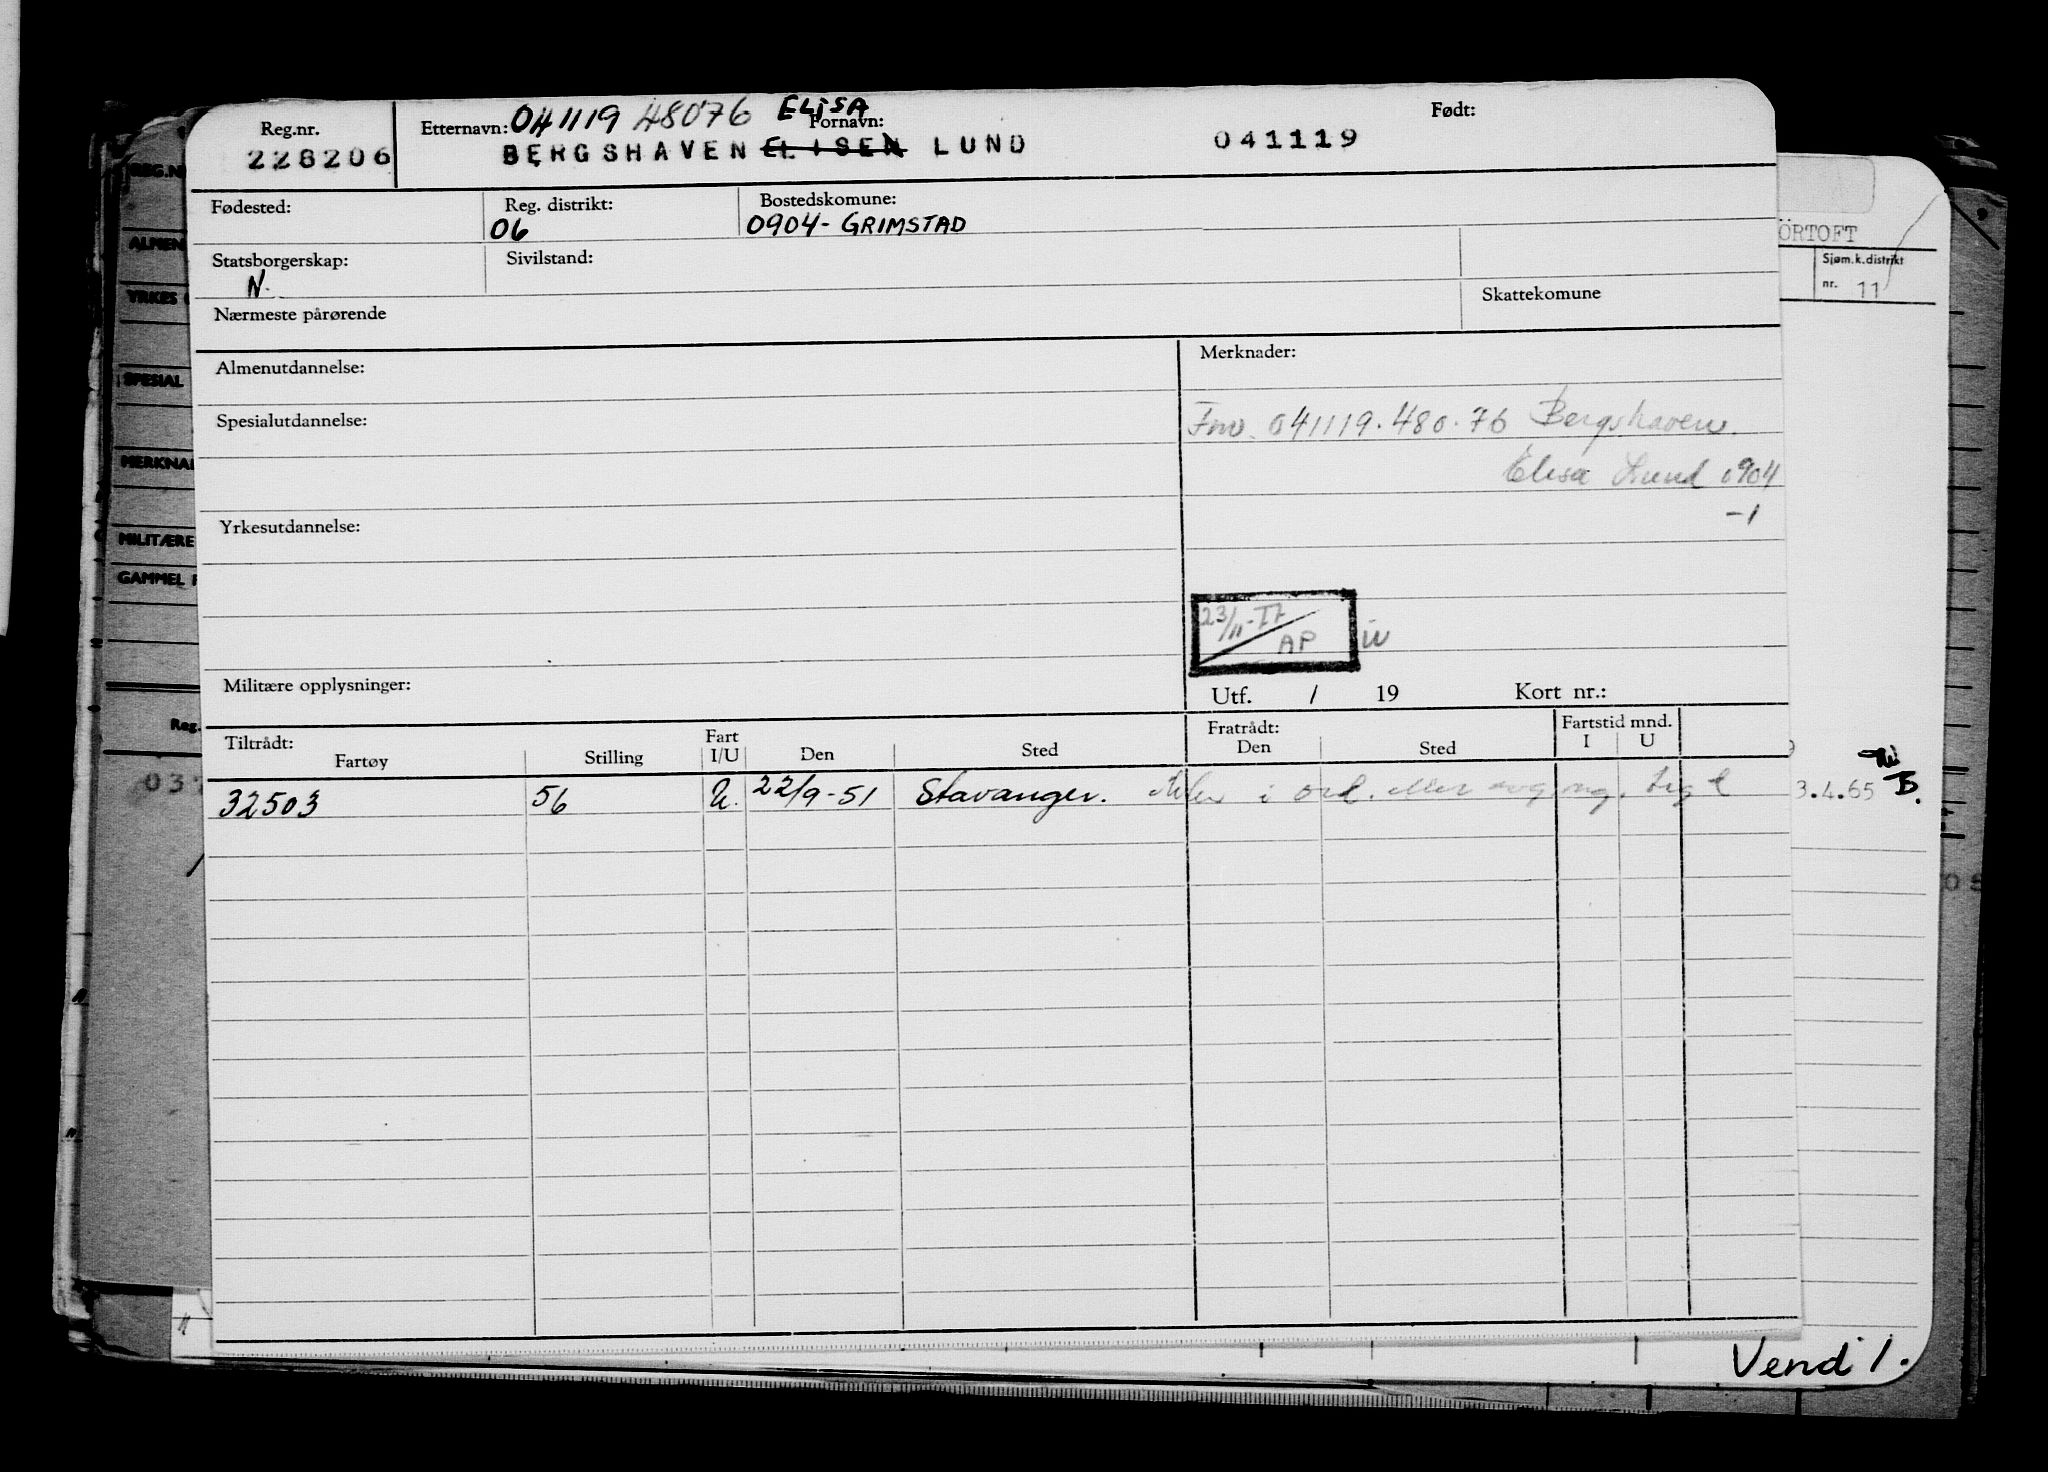 041119 48076 ELISA
Reg.nr. Etternavn: Fornavn: Født:
228206 BERGSHAVEN ELISEN LUND 041119
Fødested: Reg. distrikt: Bostedskomune:
06 0904- GRIMSTAD
Statsborgerskap: Sivilstand:
N.
Nærmeste pårørende Skattekomune
Almenutdannelse: Merknader:
Spesialutdannelse: Fnr. 041119.480.76 Bergshaven
Elisa Lund 0904
-1
Yrkesutdannelse:
23/11-77
AP
Militære opplysninger: Utf. / 19 Kort nr.:
Tiltrådt: Fratrådt: Fartstid mnd.
Fartøy Stilling Fart I/U Den Sted Den Sted I U
32503 56 U. 22/9-51 Stavanger.
ÖRTOFT
Sjøm.k.distrikt
nr. 11
3.4.65 B.
REG.N
ALMEN
YRKES
SPESIAL
MERKNA
MILITÆRE
GAMMEL
Reg.
03
05
Vend!.